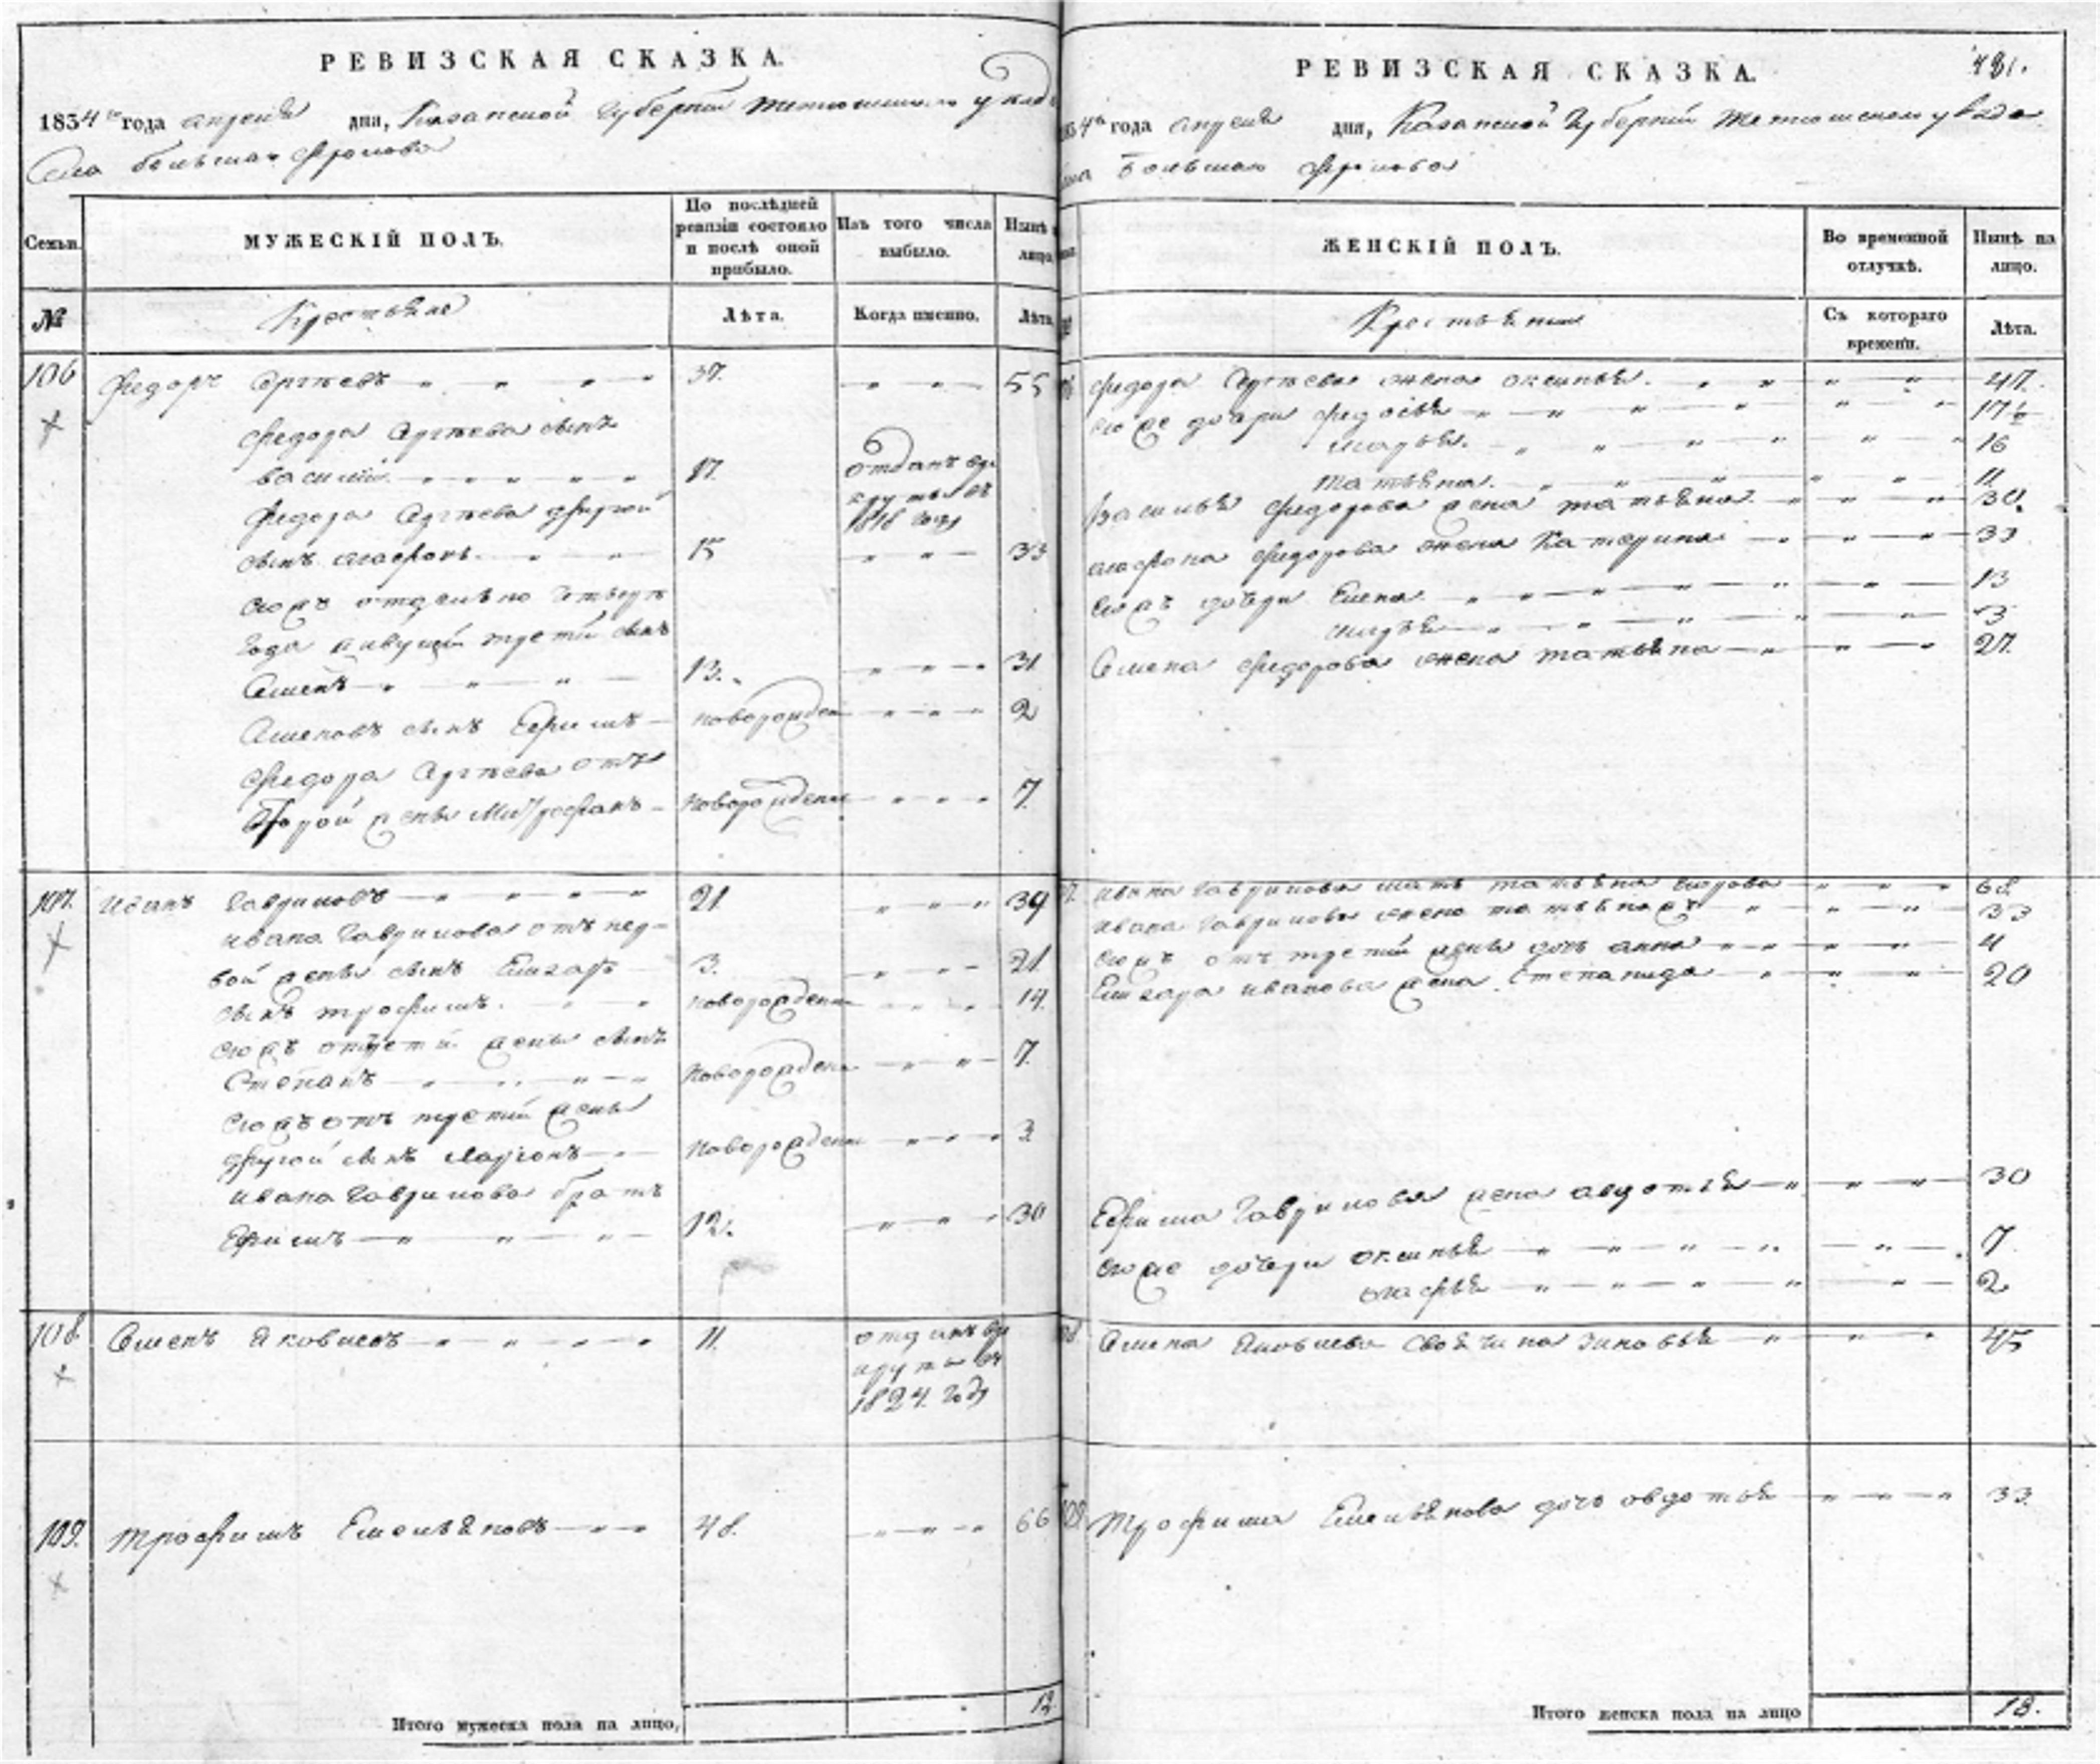 РЕВИЗСКАЯ СКАЗКА.
1834го года апреля дня, Казанской Губернии Тетюшскаго уезда
Села большаго Фролова
Семьи.
МУЖЕСКІЙ ПОЛЪ.
По послѣдней ревизіи состояло и послѣ оной прибыло.
Изъ того числа выбыло.
Нынѣ лицо.
№
Крестьяне
Лѣта.
Когда именно.
Лѣта.
106 Федоръ Сергѣевъ 37. 55
Федора Сергѣева сынъ
василий 17. отданъ
1818 году
Федора Сергѣева другой
сынъ агафонъ 15 33
третий сынъ
Семенъ 13. 31
Семеновъ сынъ Ефимъ новорожден 2
Федора Сергѣева отъ
второй жены Митрофанъ новорожденъ 7
107. Иванъ Гаврилов 21. 39
ивана Гаврилова отъ пер-
вой жены сынъ Елизаръ 3. 21
сынъ трофимъ. новорожденъ 14.
сынъ
Степанъ новорожденъ 7.
отъ третий жены
другой сынъ Ларионъ новорожденъ 3
ивана Гаврилова братъ
Ефимъ 12. 30
108 Семенъ Яковлевъ 11. отданъ
1824 году
109. Трофимъ Емельяновъ 48. 66
Итого мужеска пола на лицо, 12
РЕВИЗСКАЯ СКАЗКА. 481.
4го года апреля дня, Казанской Губернии Тетюшскаго уезда
Большаго Фролова
ЖЕНСКІЙ ПОЛЪ.
Во временной отлучкѣ.
Нынѣ на лицо.
Съ котораго времени.
Лѣта.
Федора Сергѣева жена аксинья. 47.
дочери Федосья 17
марья. 16
татьяна. 11
василья Федорова жена татьяна 30.
агафона Федорова жена Катерина 33
дочери Елена 13
3
Семена Федорова жена татьяна 27.
ивана Гаврилова мать татьяна 68
ивана Гаврилова жена татьяна 33
отъ третий жены дочь анна
Елизара иванова жена Степанида 20
Ефима Гаврилова жена авдотья 30
дочери аксинья 7
агафья 2
Семена Яковлева зиновья 45
Трофима Емельянова дочь овдотья 33.
Итого женска пола на лицо 18.